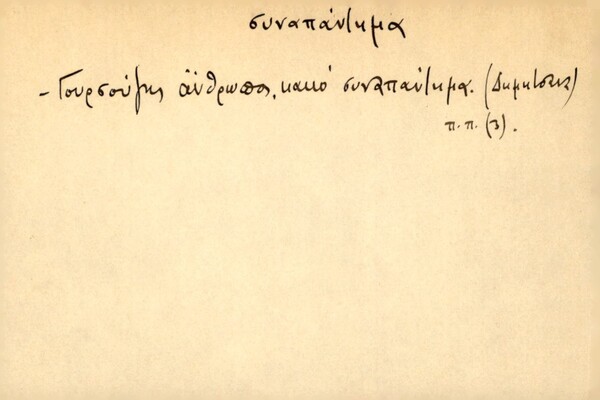 συναπάντημα
- Γουρσούζης ἄνθρωπος, κακό συναπάντημα. (Δημητσάνα)
π.π. (3).